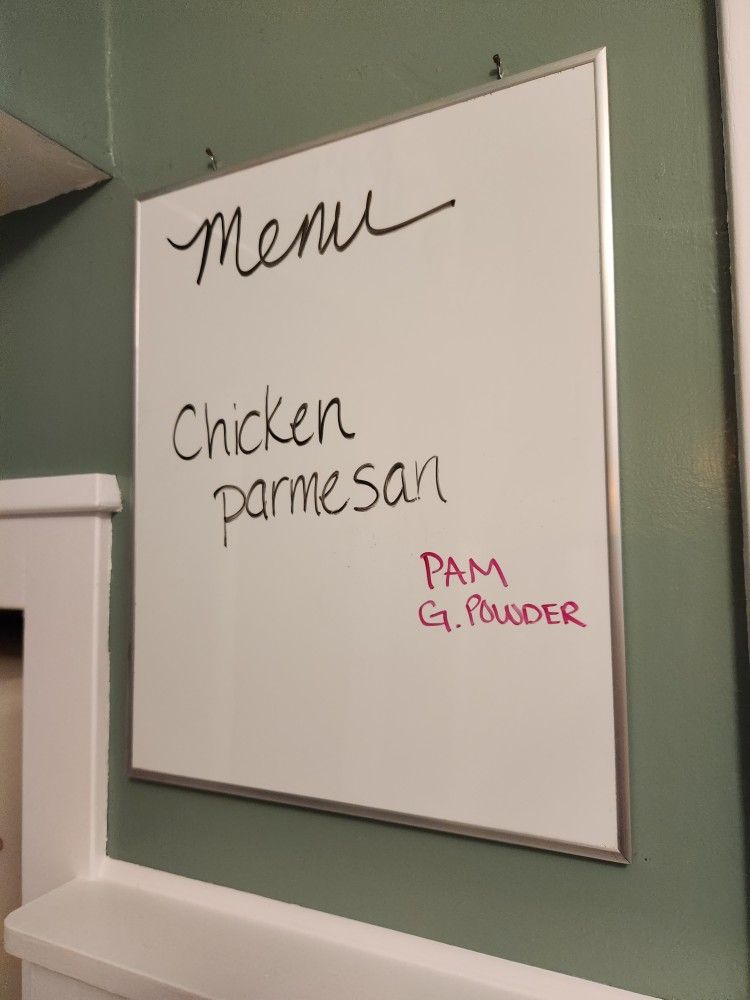 Menu
Chicken
parmesan
PAM
G. POWDER